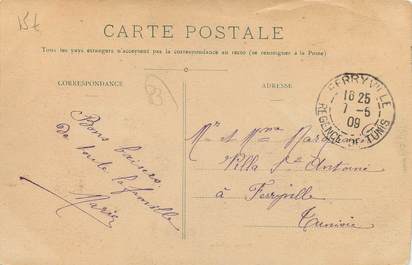 15t
CARTE POSTALE
Tous les pays étrangers n'acceptent pas la correspondance au recto (se renseigner à la Poste)
CORRESPONDANCE
ADRESSE
83
FERRYVILLE
18 25
7 - 5
09
REGENCE DE TUNIS
Bons baisers
De toute la famille
Marie
Mr et Mme
Villa St Antoine
à Ferryville
Tunisie